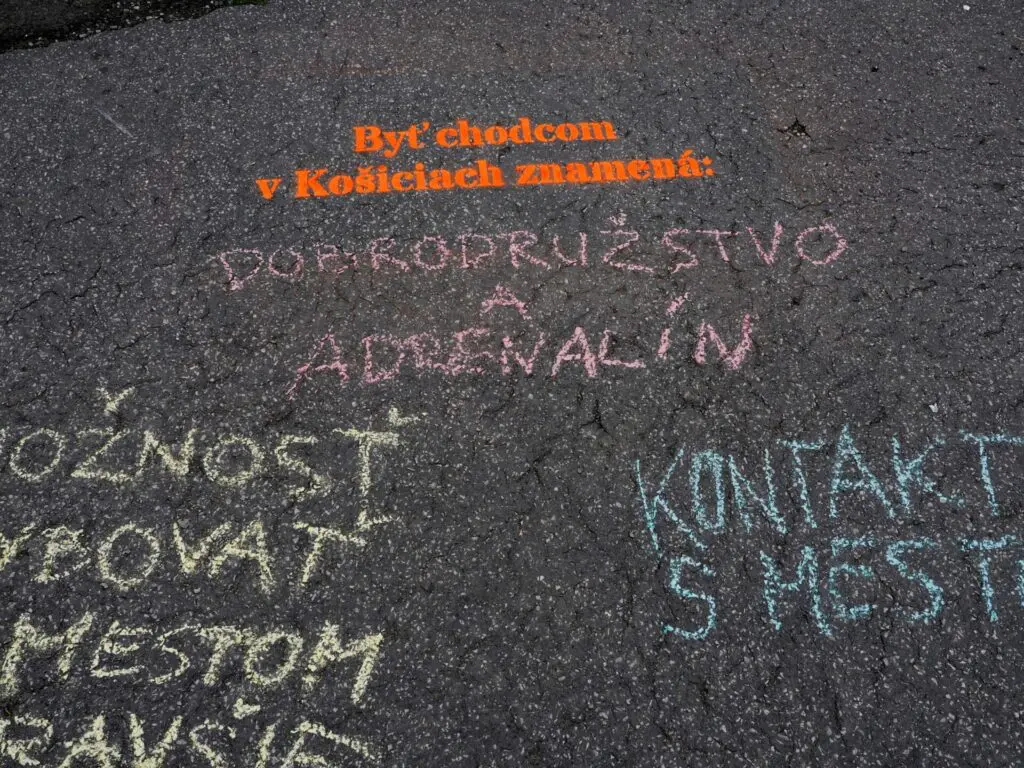 Byť chodcom
v Košiciach znamená:
DOBRODRUŽSTVO
A
ADRENALÍN
OŽNOSŤ
MESTOM
KONTAKT
S MEST